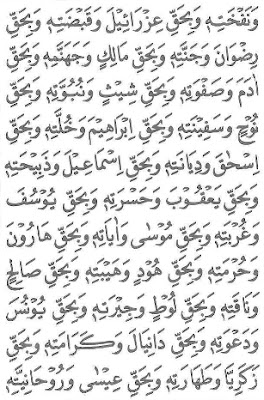 وَنَفْخَتِهٖ وَبِحَقِّ عِزْرَائِيْلَ وَقَبْضَتِهٖ وَبِحَقِّ
رِضْوَانَ وَجَنَّتِهٖ وَبِحَقِّ مَالِكٍ وَجَهَنَّمِهٖ وَبِحَقِّ
اٰدَمَ وَصَفْوَتِهٖ وَبِحَقِّ شِيْثٍ وَنُبُوَّتِهٖ وَبِحَقِّ
نُوْحٍ وَسَفِيْنَتِهٖ وَبِحَقِّ اِبْرَاهِيْمَ وَخُلَّتِهٖ وَبِحَقِّ
اِسْحٰقَ وَدِيَانَتِهٖ وَبِحَقِّ اِسْمَاعِيْلَ وَذَبِيْحَتِهٖ
وَبِحَقِّ يَعْقُوْبَ وَحَسْرَتِهٖ وَبِحَقِّ يُوْسُفَ
وَغُرْبَتِهٖ وَبِحَقِّ مُوْسٰى وَاٰيَاتِهٖ وَبِحَقِّ هَارُوْنَ
وَحُرْمَتِهٖ وَبِحَقِّ هُوْدٍ وَهَيْبَتِهٖ وَبِحَقِّ صَالِحٍ
وَنَاقَتِهٖ وَبِحَقِّ لُوْطٍ وَجِيْرَتِهٖ وَبِحَقِّ يُوْنُسَ
وَدَعْوَتِهٖ وَبِحَقِّ دَانِيَالَ وَكَرَامَتِهٖ وَبِحَقِّ
زَكَرِيَّا وَطَهَارَتِهٖ وَبِحَقِّ عِيْسٰى وَرُوْحَانِيَّتِهٖ